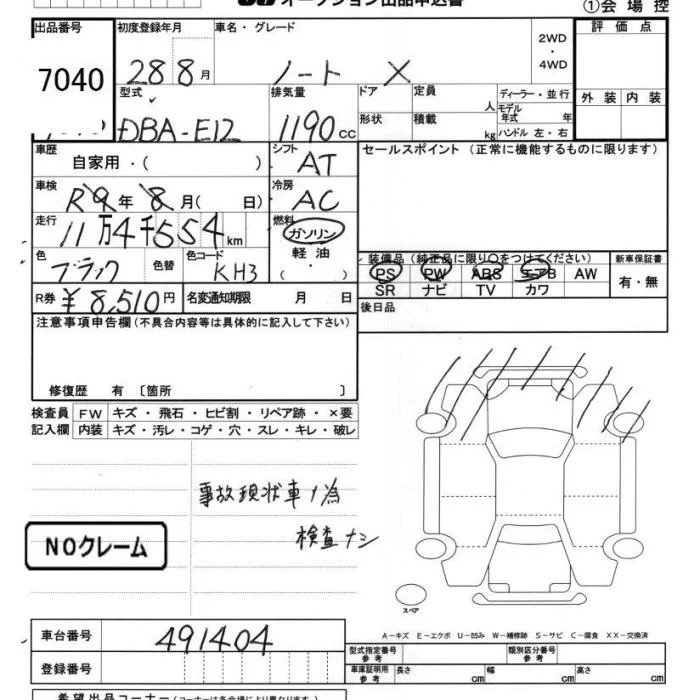 オークション出品申込書
①会場控
出品番号 初度登録年月 車名・グレード 2WD・4WD 評価点
7040 28 8月 ノート X
型式 排気量 ドア 定員 人 ディーラー・並行 外装 内装
DBA-E12 1190cc 形状 積載 kg モデル年式 年 ハンドル 左・右
車歴 自家用・( ) シフト AT セールスポイント (正常に機能するものに限ります)
車検 R 9年 8月( 日) 冷房 AC
走行 11万4千554km 燃料 ガソリン 軽油 ( ・ )
色 ブラック 色替 色コード KH3
装備品 (純正品に限り○をつけてください) 新車保証書
PS PW ABS エアB AW 有・無
SR ナビ TV カワ
R券 ¥8,510円 名変通知期限 月 日 後日品
注意事項申告欄 (不具合内容等は具体的に記入して下さい)
修復歴 有 〔箇所 〕
検査員 FW キズ・飛石・ヒビ割・リペア跡・×要
記入欄 内装 キズ・汚レ・コゲ・穴・スレ・キレ・破レ
事故現状車ノ為
検査ナシ
NOクレーム
スペア
A-キズ E-エクボ U-凹み W-補修跡 S-サビ C-腐食 XX-交換済
車台番号 491404 型式指定番号 参考 類別区分番号 参考
登録番号 車庫証明用 参考 長さ cm 幅 cm 高さ cm
希望出品コーナー (コーナーは各会場により異なります)